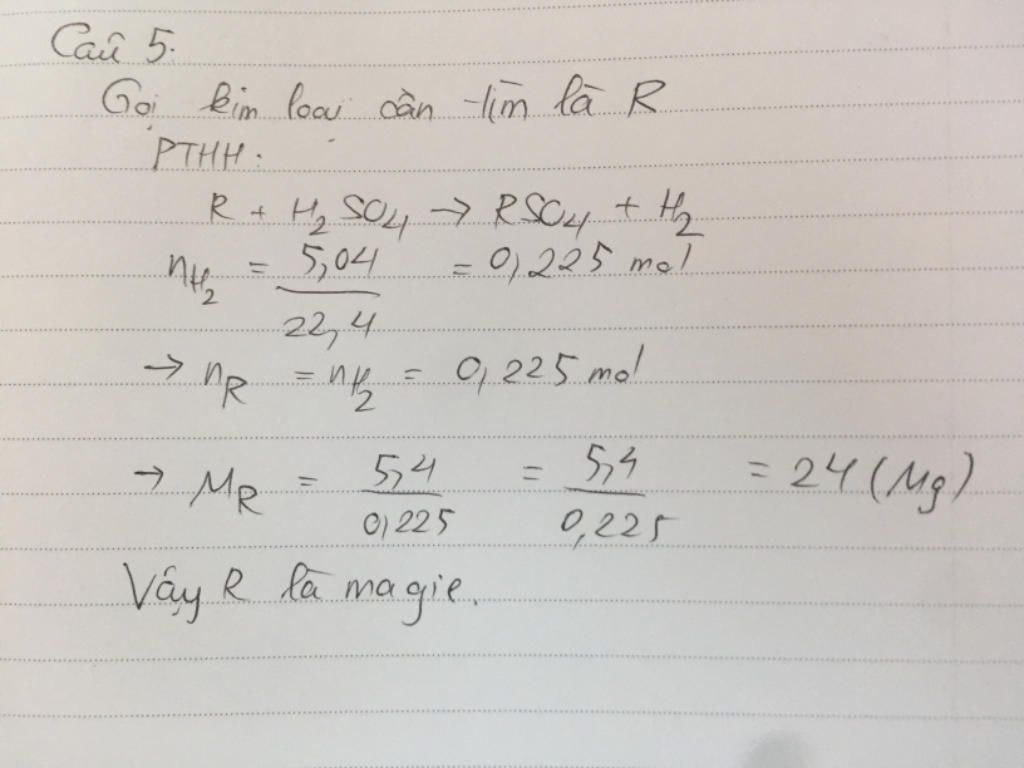 Câu 5.
Gọi kim loại cần tìm là R
PTHH:
R + H₂SO₄ → RSO₄ + H₂
nH₂ = 5,04/22,4 = 0,225 mol
→ nR = nH₂ = 0,225 mol
→ MR = 5,4/0,225 = 5,4/0,225 = 24 (Mg)
Vậy R là magie.